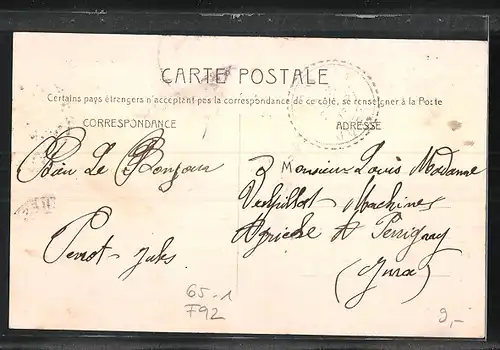 CARTE POSTALE
Certains pays étrangers n'acceptant pas la correspondance de ce côté, se renseigner à la Poste
CORRESPONDANCE
ADRESSE
Bien Le Bonjour
Perrot Jules
Monsieur Louis
Machines
Agricole à Perrigny
(Jura)
65-1
F92
9,-